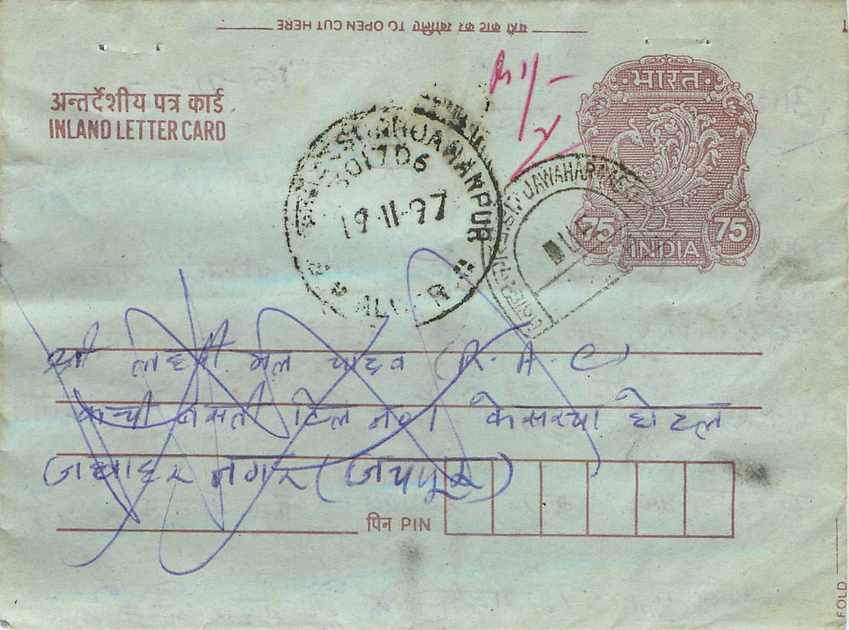 यहाँ काट कर खोलिए TO OPEN CUT HERE
अन्तर्देशीय पत्र कार्ड
INLAND LETTER CARD
भारत
75 75
INDIA
SHAHJAHANPUR
301706
19-11-97
ALWAR
JAWAHAR
श्री लक्ष्मी मल यादव (R. A. C)
कच्ची बस्ती टिला नं० 1 केसरया होटल
जवाहर नगर (जयपुर)
पिन PIN
FOLD